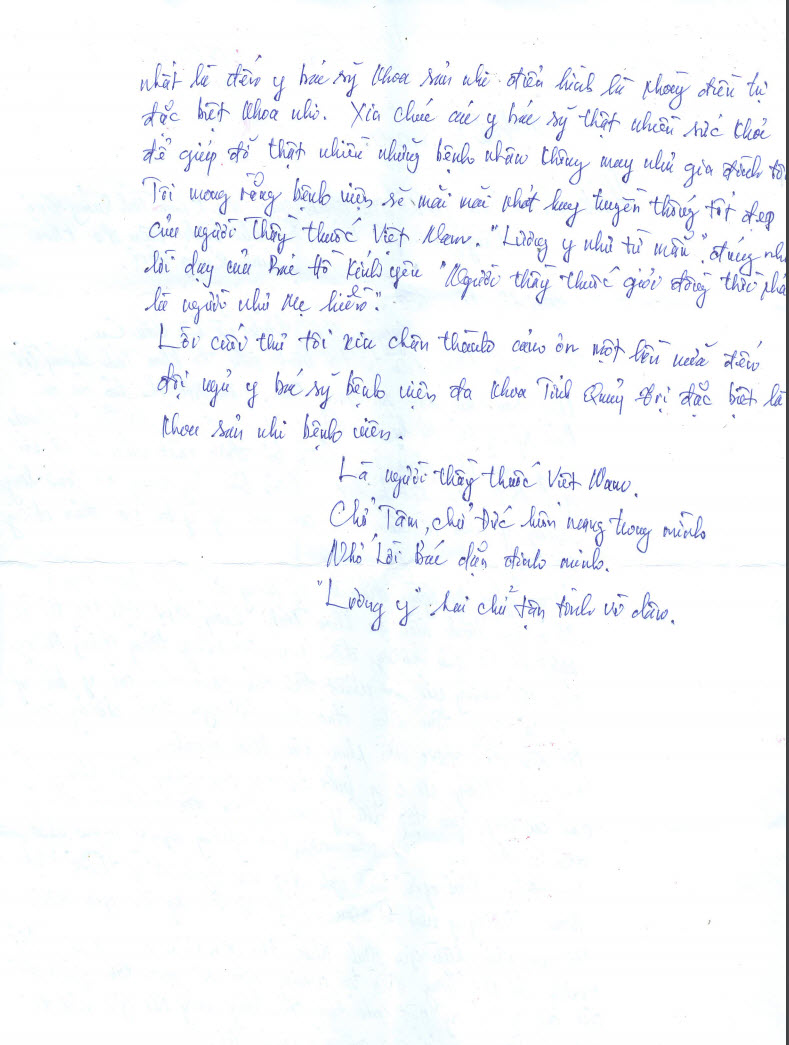 nhất là đến y bác sỹ khoa sản nhi điển hình là phòng điều trị
đặc biệt khoa nhi. Xin chúc các y bác sỹ thật nhiều sức khỏe
để giúp đỡ thật nhiều những bệnh nhân không may như gia đình tôi
Tôi mong rằng bệnh viện sẽ mãi mãi phát huy truyền thống tốt đẹp
của người thầy thuốc Việt Nam. "Lương y như từ mẫu", đúng như
lời dạy của Bác Hồ kính yêu "Người thầy thuốc giỏi đồng thời phải
là người như mẹ hiền".
Lời cuối thư tôi xin chân thành cảm ơn một lần nữa đến
đội ngủ y bác sỹ bệnh viện đa khoa Tỉnh Quảng Trị đặc biệt là
khoa sản nhi bệnh viện.
Là người thầy thuốc Việt Nam.
Chử Tâm, chử Đức luôn mang trong mình
Nhớ Lời Bác dặn đinh ninh.
"Lương y" hai chử tận tình vì dân.